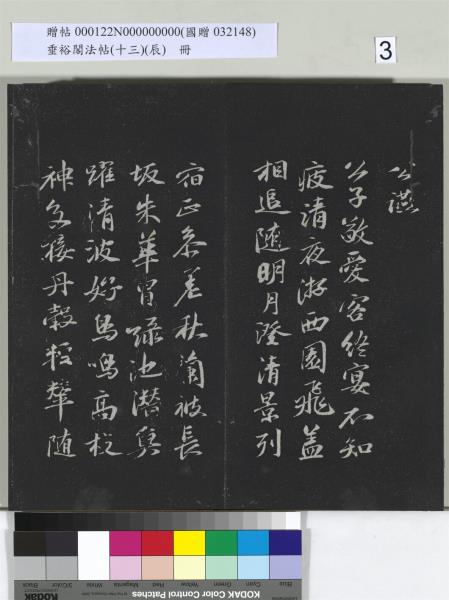 贈帖 000122N000000000(國贈 032148)
垂裕閣法帖(十三)(辰) 冊
3
公讌
公子敬愛客終宴不知
疲清夜游西園飛蓋
相追隨明月澄清景列
宿正參差秋蘭被長
坂朱華冒綠池潛魚
躍清波好鳥鳴高枝
神飇接丹轂輕輦随
Black
3/Color
White
Magenta
Red
Yellow
Green
Cyan
Blue
KODAK Color Control Patches